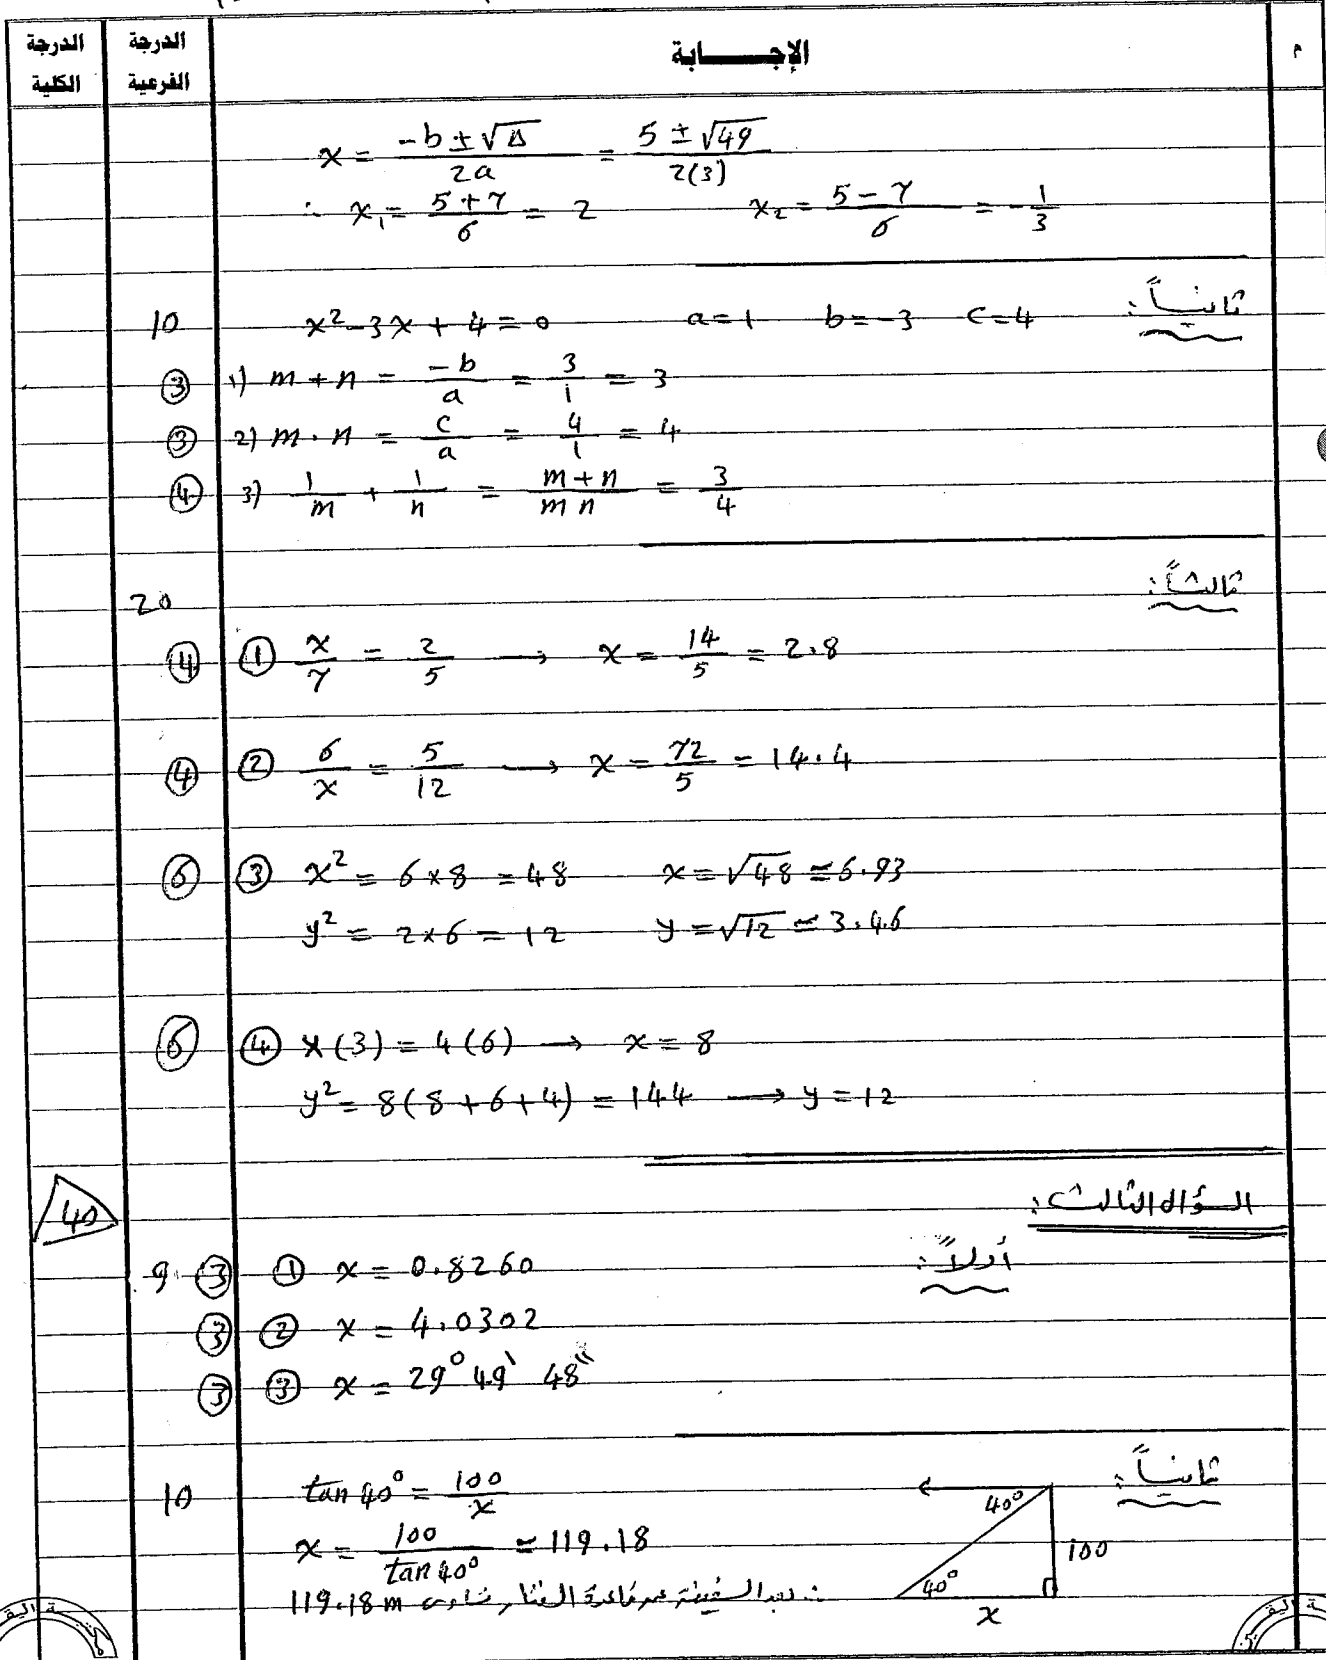 م الإجـــــابة الدرجة الفرعية الدرجة الكلية
x = (-b ± √Δ)/(2a) = (5 ± √49)/(2(3))
∴ x₁ = (5+7)/6 = 2 x₂ = (5-7)/6 = -1/3
ثانياً:
10 x² - 3x + 4 = 0 a = 1 b = -3 c = 4
③ 1) m + n = -b/a = 3/1 = 3
③ 2) m . n = c/a = 4/1 = 4
④ 3) 1/m + 1/n = (m+n)/(m n) = 3/4
ثالثاً:
20
④ ① x/7 = 2/5 → x = 14/5 = 2.8
④ ② 6/x = 5/12 → x = 72/5 = 14.4
⑥ ③ x² = 6 × 8 = 48 x = √48 ≃ 6.93
y² = 2×6 = 12 y = √12 ≃ 3.46
⑥ ④ x(3) = 4(6) → x = 8
y² = 8(8+6+4) = 144 → y = 12
السؤال الثالث:
40
أولاً:
9 ③ ① x = 0.8260
③ ② x = 4.0302
③ ③ x = 29° 49' 48"
ثانياً:
10 tan 40° = 100/x
x = 100/tan 40° ≃ 119.18
∴ بعد السفينة عن قاعدة الفنار تساوى 119.18 m
40°
100
40°
x